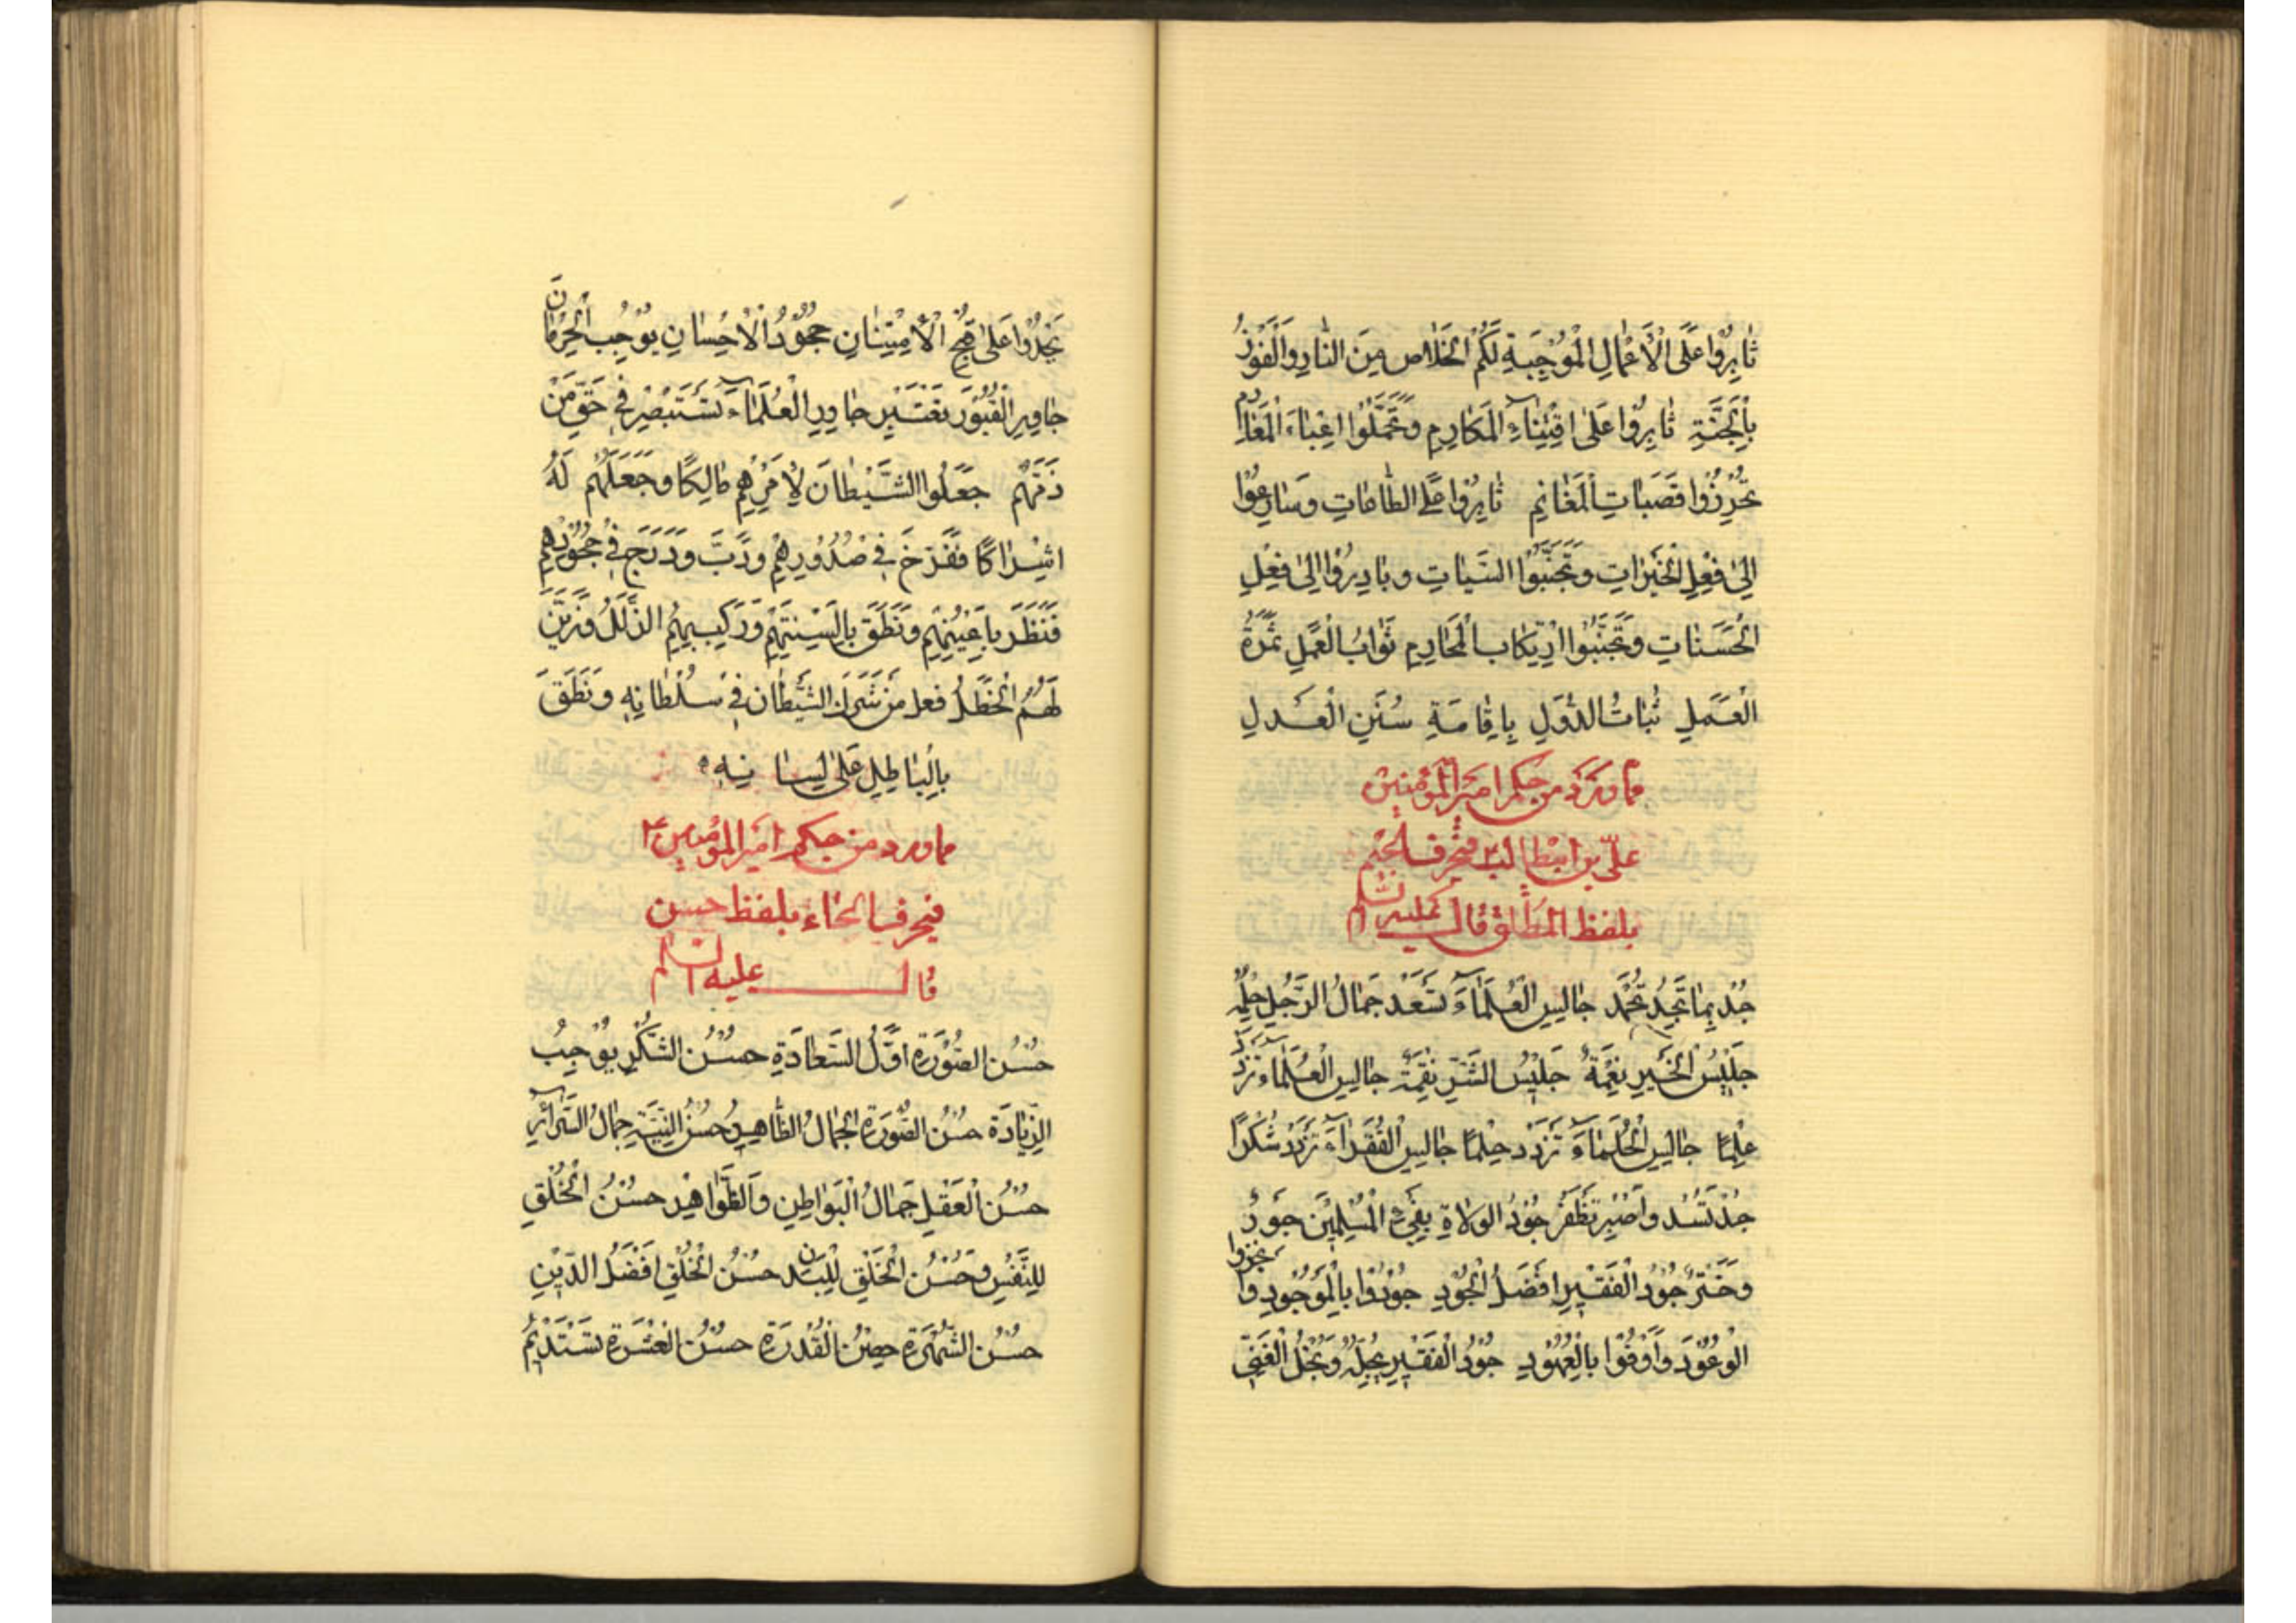 ثابِرُوا عَلَى الْأَعْمَالِ الْمُوْجِبَةِ لَكُمُ الْخَلاص مِنَ النّارِ وَالْفَوْزُ
بِالْجَنَّةِ ثابِرُوا عَلى اقْتِناءِ الْمَكارِمِ وَتَحَمَّلُوا اعْباءَ الْمَغارِمِ
تُحْرِزُوا قَصَباتِ الْمَغانِمِ ثابِرُوا عَلَى الطّاعاتِ وَسارِعُوا
اِلى فِعْلِ الْخَيْراتِ وَتَجَنَّبُوا السَّيِّاتِ وَبادِرُوا اِلى فِعْلِ
الْحَسَناتِ وَتَجَنَّبُوا ارْتِكاب الْمَحارِمِ ثَوابُ الْعَمَلِ ثَمَرَةُ
الْعَمَلِ ثَباتُ الدُّوَلِ بِاِقامَةِ سُنَنِ الْعَدلِ
مما ورد من حكم امير المؤمنين
علىّ بن ابيطالب ع فى حرف الجيم
بلفظ المطلق قال عليه السلم
جُد بِما تَجِدُ تُحْمَد جالِسِ الْعُلَماءَ تَسْعَد جَمالُ الرَّجُلِ حِلْمُهُ
جَليْسُ الْخَيرِ نِعْمَةٌ جَليْسُ الشَّرِّ نِقْمَةٌ جالِسِ الْعُلَماءَ تَزْدَد
عِلْمًا جالِسِ الْحُلَماءَ تَزْدَد حِلمًا جالِسِ الْفُقَراءَ تَزْدَد شُكْرًا
جُدْ تَسُد وَاصْبِر تَظْفَر جُوْدُ الولاةِ بِفَىْءِ الْمُسْلِمِيْنَ جَوْرٌ
وَخَتْرٌ جُوْدُ الْفَقيْرِ افْضَلُ الْجُوْدِ جُوْدُوا بِالْمَوْجُوْدِ وَانْجِزُوا
الْوُعُوْدَ وَاَوْفُوا بِالْعُهُوْدِ جُوْدُ الْفَقيْرِ يُجِلُّهُ وَبُخْلُ الْغَنِىّ
يَجُدُّوا عَلى قُبْحِ الْامْتِنانِ جُحُوْدُ الْاحْسانِ يُوْجِبُ الْحِرْمانَ
جاوِرِ الْقُبُوْرَ تَعْتَبِر جاوِرِ الْعُلَماءَ تَسْتَبْصِر فى حَقّ مَنْ
ذَمَّهُم جَعَلُوا الشَّيْطانَ لِاَمْرِهِم مالِكًا وَجَعَلَهُم لَهُ
اشْراكًا فَفَرَّخَ فى صُدُوْرِهِمْ وَدَبَّ وَدَرَجَ فى حُجُوْرِهِم
فَنَظَرَ بِاَعْيُنِهِم وَنَطَقَ بِالْسِنَتِهِمْ وَرَكِبَ بِهِمُ الزَّلَلَ وَزَيَّنَ
لَهُمُ الْخَطَلَ فعل من شَرَكَ الشَّيْطان فى سُلْطانِهِ وَنَطَقَ
بِالْباطِلِ عَلى لِسانِهِ
مما ورد من حكم امير المؤمنين ع
فى حرف الحاء بلفظ حسن
قال عليه السلم
حُسْنُ الصُّوْرَةِ اوَّلُ السَّعادَةِ حُسْنُ الشُّكْرِ يُوْجِبُ
الزِّيادَةَ حُسْنُ الصُّوْرَةِ الْجَمالُ الظّاهِرُ حُسْنُ النِّيَّةِ جَمالُ السَّرائِرِ
حُسْنُ الْعَقْلِ جَمالُ الْبَواطِنِ وَالظَّواهِرِ حُسْنُ الْخُلْقِ
لِلنَّفْسِ وَحُسْنُ الْخَلْقِ لِلْبَدَنِ حُسْنُ الْخُلْقِ افْضَلُ الدّيْنِ
حُسْنُ الشُّهْرَةِ حِصْنُ الْقُدْرَةِ حُسْنُ الْعِشْرَةِ تَسْتَدِيْمُ